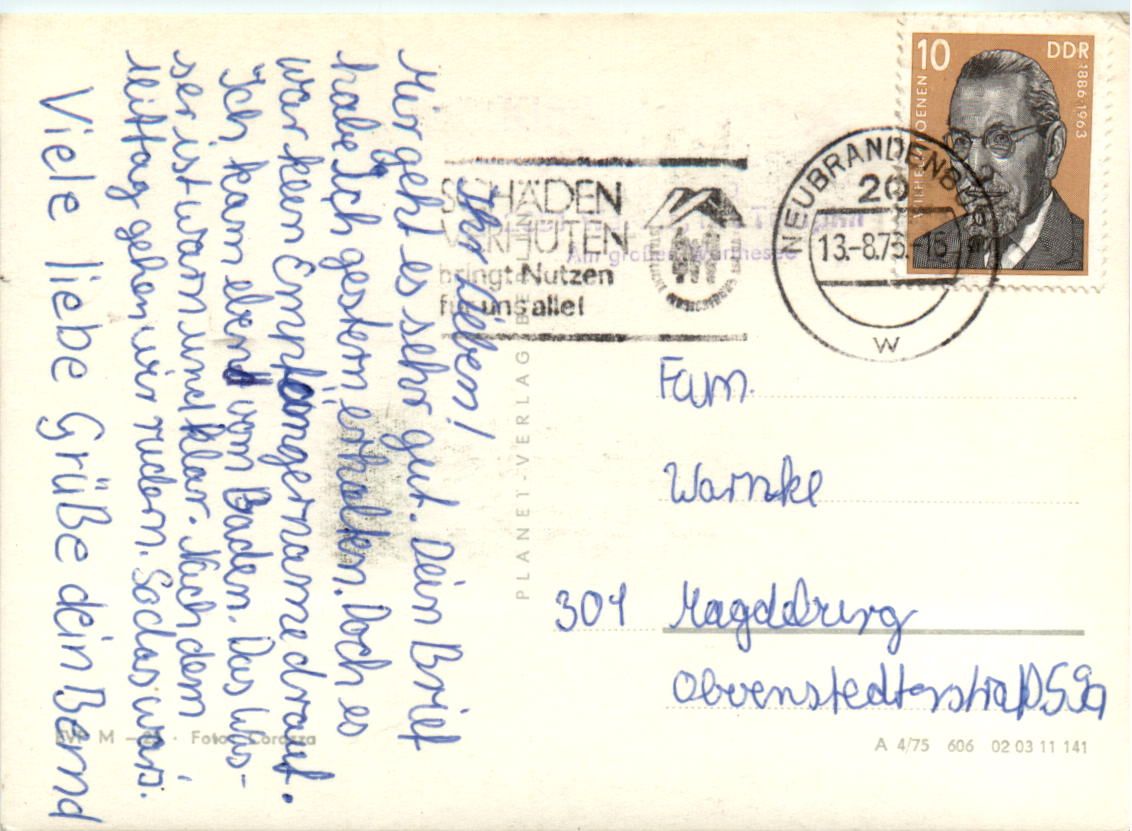 Ihr Lieben!
Mir geht es sehr gut. Dein Brief
habe ich gestern erhalten. Doch es
war keen Empfangername drauf.
Ich kam ebend vom Baden. Das Was-
ser ist warm und klar. Nach dem
Mittag gehen wir rudern. So das wars.
Viele liebe Grüße dein Bernd
EVP M – · Foto: Corazza
PLANET-VERLAG BERLIN
SCHÄDEN
VERHÜTEN
bringt Nutzen
für uns alle!
Am großen
NEUBRANDENB
20
13.-8.75.-15
w
10 DDR
1886·1963
Fam.
Warnke
301 Magdeburg
59a
A 4/75 606 02 03 11 141